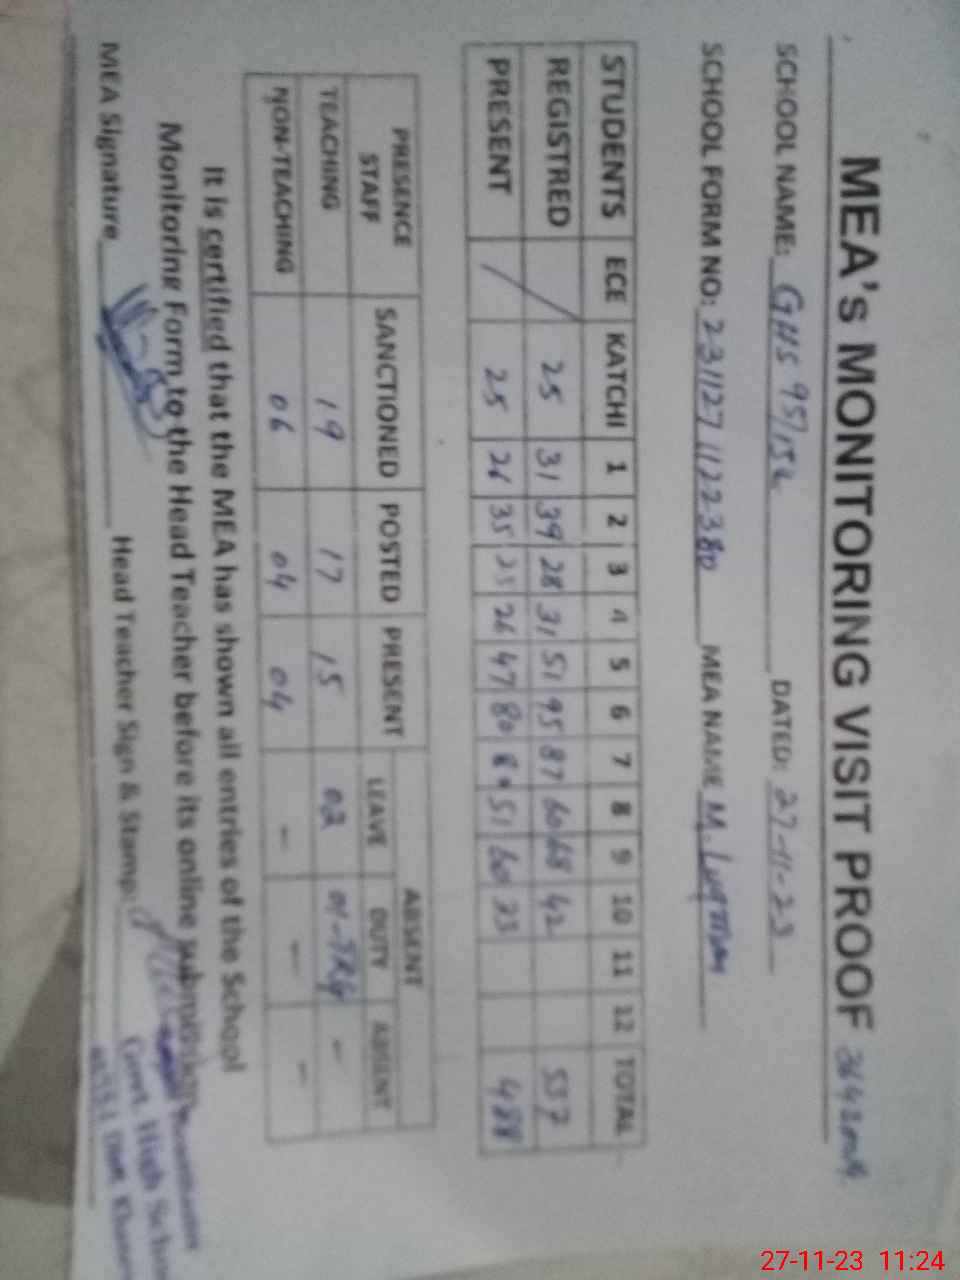 MEA's MONITORING VISIT PROOF
SCHOOL NAME: GHS 95/15L DATED: 27-11-23
SCHOOL FORM NO: 231127 1122380 MEA NAME M. Luqman
STUDENTS ECE KATCHI 1 2 3 4 5 6 7 8 9 10 11 12 TOTAL
REGISTRED 25 31 39 28 31 51 95 87 60 68 42 557
PRESENT 25 26 35 25 26 47 80 80 51 60 33 488
PRESENCE STAFF SANCTIONED POSTED PRESENT ABSENT
LEAVE DUTY ABSENT
TEACHING 19 17 15 02 01-TRG -
NON-TEACHING 06 04 04 - - -
It is certified that the MEA has shown all entries of the School
Monitoring Form to the Head Teacher before its online submission
MEA Signature Head Teacher Sign & Stamp:
Govt. High School
27-11-23 11:24